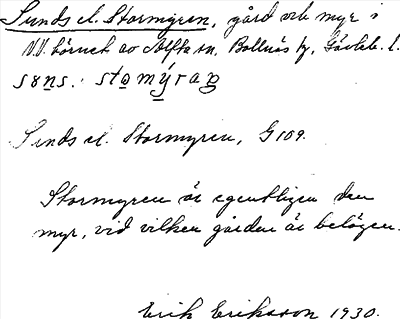 Sunds el. Stormyren, gård och myr i
V.V. hörnet av Alfta sn, Bollnäs tg, Gävleb. l.
sɷns. stomýraṉ
Sunds el. Stormyren, G 109.
Stormyren är egentligen den
myr, vid vilken gården är belägen.
Erik Eriksson 1930.